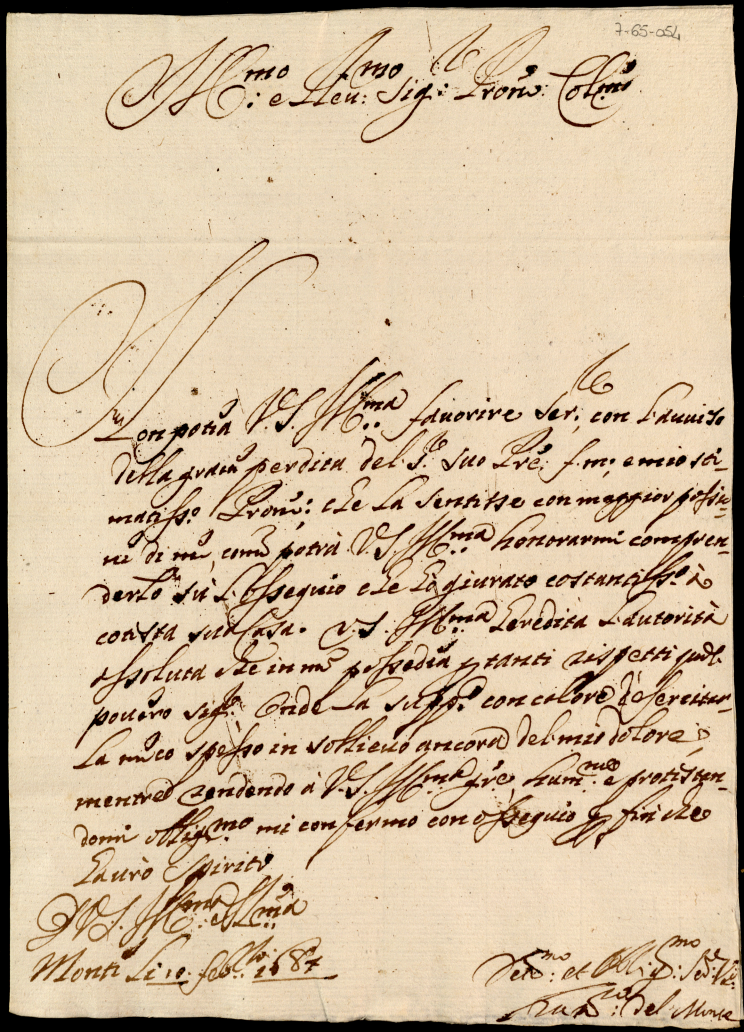 7-65-054
Ill:mo e Rev:mo Sig:r Pron: Col:mo
Non potea V.S. Ill:ma favorire ser: con l'avviso
della grave perdita del S.r suo Pre: f.m: e mio sti-
matiss:o Pron: che la sentisse con maggior passio-
ne di me, come potrà V.S. Ill:ma honorarmi compren-
derlo da l'ossequio che hò giurato costantiss:o à
cotesta sua Casa. V.S. Ill:ma heredita l'autorità
assoluta che in me possedeva p tanti rispetti quel
povero sig:re Onde La supp:co con calore à esercitar-
la meco spesso in sollievo ancora del mio dolore;
mentre rendendo à V.S. Ill:ma gre: hum:me e protestan-
domi obblig:mo mi confermo con ossequio p fin che
haurò spirito
D V.S. Ill:ma e R:ma
Monte Li 10: feb:ro 1687
Dev:mo et Obblig:mo Ser:
del Monte